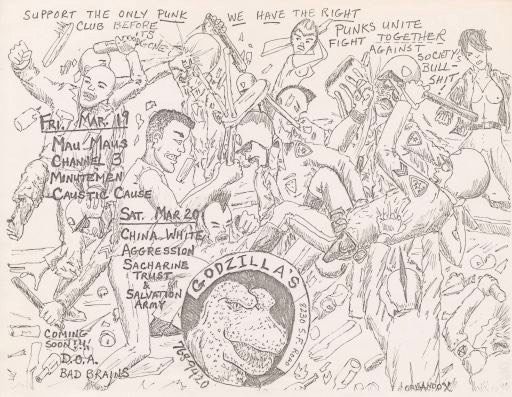 SUPPORT THE ONLY PUNK
CLUB BEFORE
ITS
GONE
WE HAVE THE RIGHT
PUNKS UNITE
FIGHT TOGETHER
AGAINST
SOCIETY'S
BULL-
SHIT!
FRI. MAR. 19
MAU MAUS
CHANNEL 3
MINUTEMEN
CAUSTIC CAUSE
SAT. MAR 20
CHINA WHITE
AGGRESSION
SACHARINE
TRUST
&
SALVATION
ARMY
GODZILLA'S
8230 S.F. ROAD
768-9420
COMING
SOON!!!
D.O.A.
BAD BRAINS